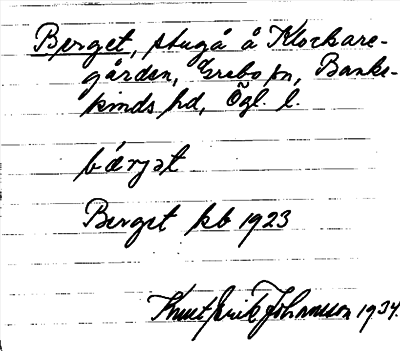 Berget, stuga å Klockare-
gården, Grebo sn, Banke-
kinds hd, Ögl. l.
bärjət
Berget kb 1923
Knut Erik Johansson 1934.